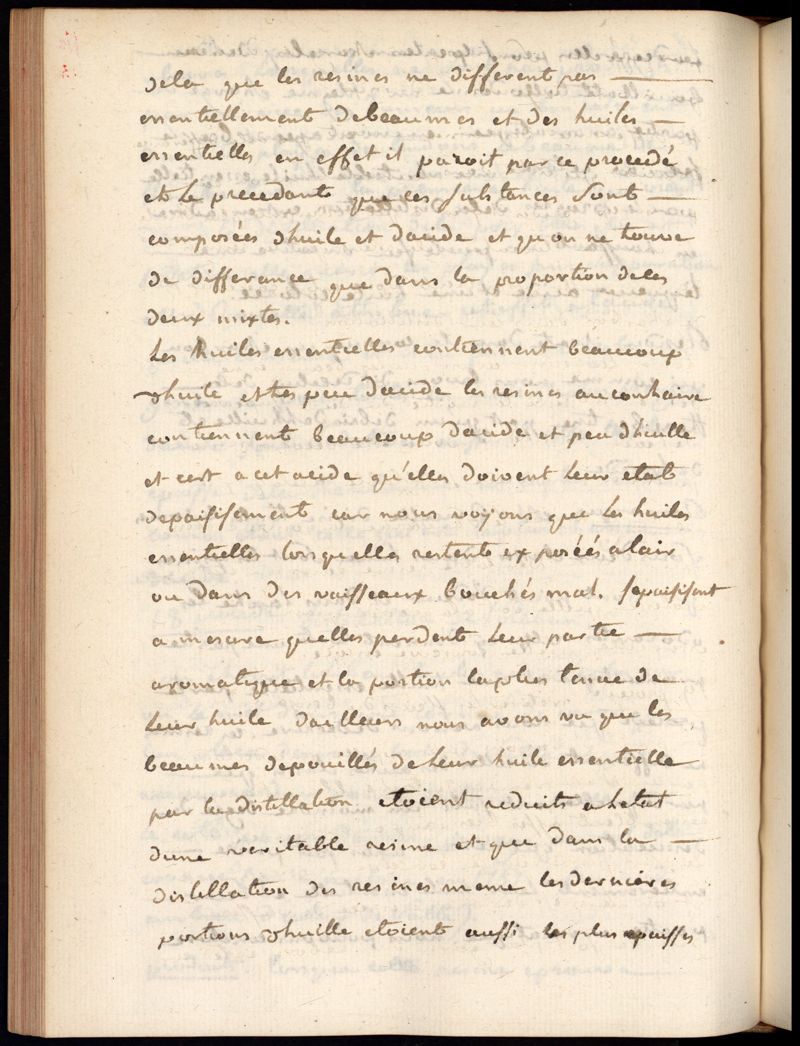 dela que les resines ne different pas
essentiellement debeaumes et des huiles
essentielles en effet il paroit par ce procedé
et le precedant que ces substances sont
composées dhuile et dacide et quon ne trouve
de differance que dans la proportion deces
deux mixtes.
Les huiles essentielles contiennent beaucoup
dhuile et tres peu dacide les resines aucontraire
contiennent beaucoup dacide et peu dhuille
et cest a cet acide qu'elles doivent leur etat
depaisissement car nous voyons que les huiles
essentielles lorsquelles restente exposéés alair
ou dans des vaisseaux bouchés mal. sepaisissent
a mesure quelles perdent leur partie
aromatique et la portion laplus tenue de
leur huile dailleurs nous avons vu que les
beaumes depouillés deleur huile essentielle
par la distillation etoient reduits a letat
dune veritable resine et que dans la
distillation des resines meme les dernieres
portions dhuille etoient aussi les plus epaisses